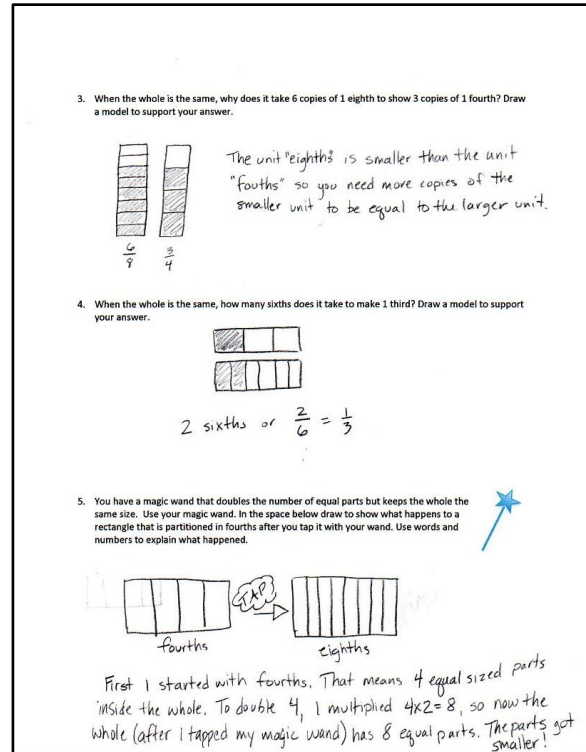 3. When the whole is the same, why does it take 6 copies of 1 eighth to show 3 copies of 1 fourth? Draw
a model to support your answer.
The unit "eighths" is smaller than the unit
"fouths" so you need more copies of the
smaller unit to be equal to the larger unit.
6/8 3/4
4. When the whole is the same, how many sixths does it take to make 1 third? Draw a model to support
your answer.
2 sixths or 2/6 = 1/3
5. You have a magic wand that doubles the number of equal parts but keeps the whole the
same size. Use your magic wand. In the space below draw to show what happens to a
rectangle that is partitioned in fourths after you tap it with your wand. Use words and
numbers to explain what happened.
TAP!
fourths eighths
First I started with fourths. That means 4 equal sized parts
inside the whole. To double 4, I multiplied 4x2=8, so now the
whole (after I tapped my magic wand) has 8 equal parts. The parts got
smaller!